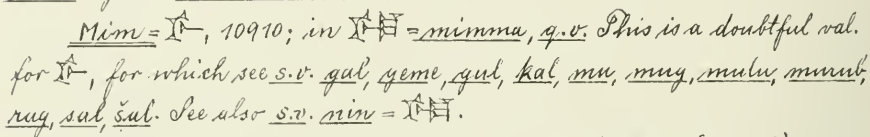 Mim = 𒊩, 10910; in 𒊩𒌆 = mimma, q.v. This is a doubtful val.
for 𒊩, for which see s.v. gal, geme, gul, kal, mu, mug, mulu, murub,
rug, sal, šul. See also s.v. nin = 𒊩𒌆.